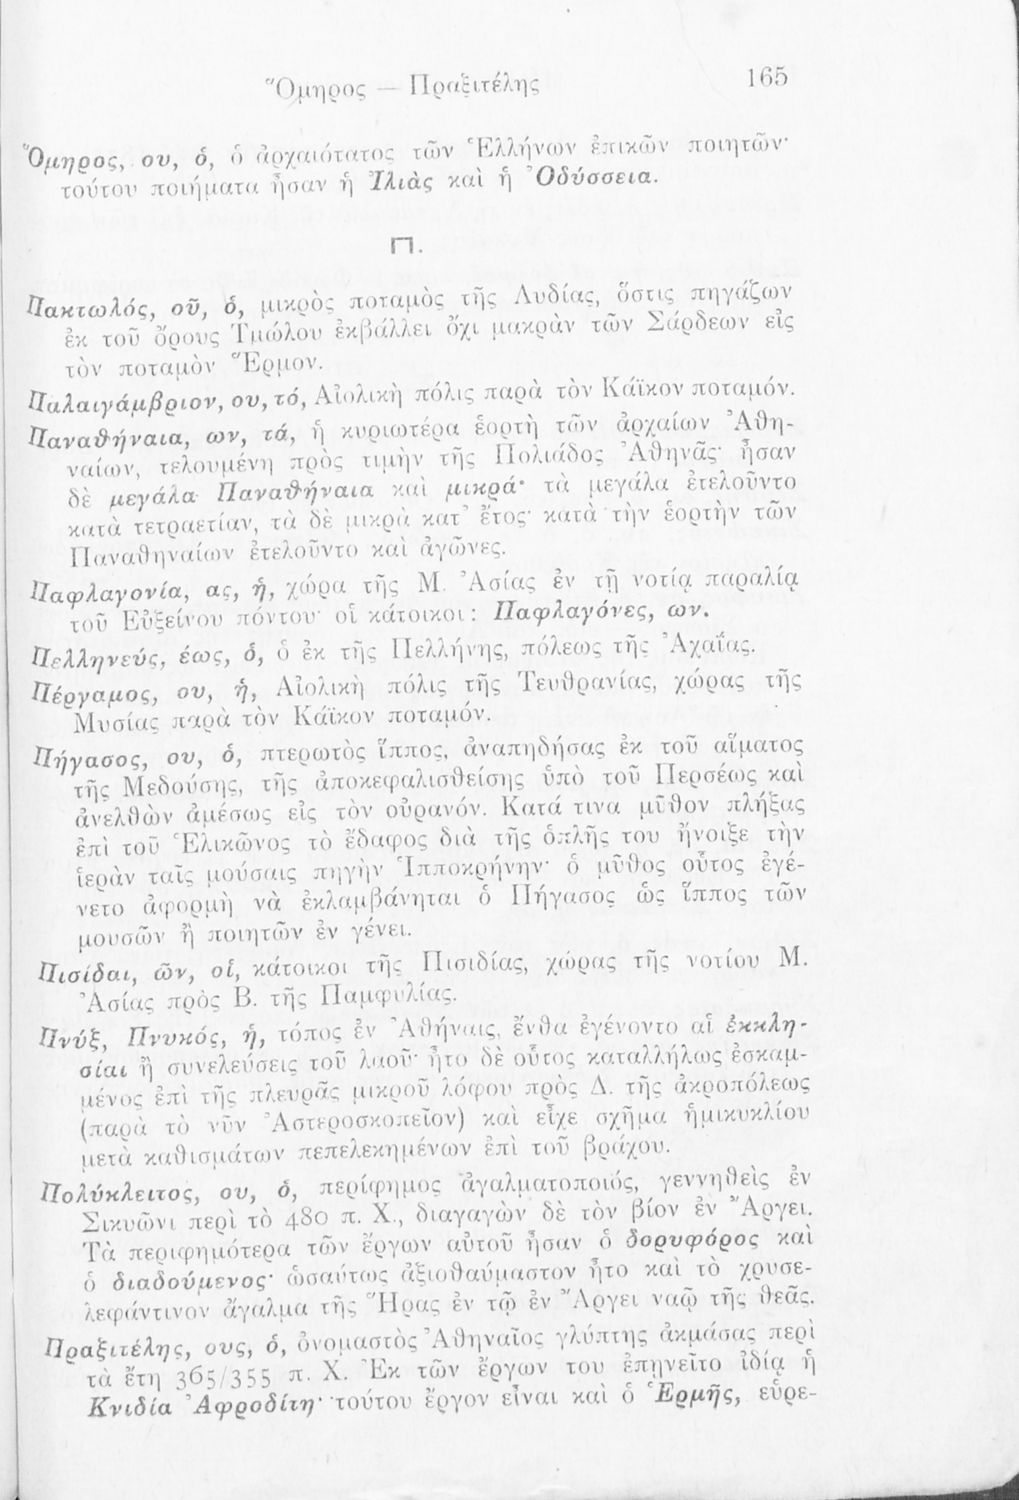 Ὅμηρος — Πραξιτέλης 165
Ὅμηρος, ου, ὁ, ὁ ἀρχαιότατος τῶν Ἑλλήνων ἐπικῶν ποιητῶν·
τούτου ποιήματα ἦσαν ἡ Ἰλιὰς καὶ ἡ Ὀδύσσεια.
Π.
Πακτωλός, οῦ, ὁ, μικρὸς ποταμὸς τῆς Λυδίας, ὅστις πηγάζων
ἐκ τοῦ ὄρους Τμώλου ἐκβάλλει ὄχι μακρὰν τῶν Σάρδεων εἰς
τὸν ποταμὸν Ἕρμον.
Παλαιγάμβριον, ου, τό, Αἰολικὴ πόλις παρὰ τὸν Κάϊκον ποταμόν.
Παναθήναια, ων, τά, ἡ κυριωτέρα ἑορτὴ τῶν ἀρχαίων Ἀθη-
ναίων, τελουμένη πρὸς τιμὴν τῆς Πολιάδος Ἀθηνᾶς· ἦσαν
δὲ μεγάλα Παναθήναια καὶ μικρά· τὰ μεγάλα ἐτελοῦντο
κατὰ τετραετίαν, τὰ δὲ μικρὰ κατ' ἔτος· κατὰ τὴν ἑορτὴν τῶν
Παναθηναίων ἐτελοῦντο καὶ ἀγῶνες.
Παφλαγονία, ας, ἡ, χώρα τῆς Μ. Ἀσίας ἐν τῇ νοτίᾳ παραλίᾳ
τοῦ Εὐξείνου πόντου· οἱ κάτοικοι: Παφλαγόνες, ων.
Πελληνεύς, έως, ὁ, ὁ ἐκ τῆς Πελλήνης, πόλεως τῆς Ἀχαΐας.
Πέργαμος, ου, ἡ, Αἰολικὴ πόλις τῆς Τευθρανίας, χώρας τῆς
Μυσίας παρὰ τὸν Κάϊκον ποταμόν.
Πήγασος, ου, ὁ, πτερωτὸς ἵππος, ἀναπηδήσας ἐκ τοῦ αἵματος
τῆς Μεδούσης, τῆς ἀποκεφαλισθείσης ὑπὸ τοῦ Περσέως καὶ
ἀνελθὼν ἀμέσως εἰς τὸν οὐρανόν. Κατά τινα μῦθον πλήξας
ἐπὶ τοῦ Ἑλικῶνος τὸ ἔδαφος διὰ τῆς ὁπλῆς του ἤνοιξε τὴν
ἱερὰν ταῖς μούσαις πηγὴν Ἱπποκρήνην· ὁ μῦθος οὗτος ἐγέ-
νετο ἀφορμὴ νὰ ἐκλαμβάνηται ὁ Πήγασος ὡς ἵππος τῶν
μουσῶν ἢ ποιητῶν ἐν γένει.
Πισίδαι, ῶν, οἱ, κάτοικοι τῆς Πισιδίας, χώρας τῆς νοτίου Μ.
Ἀσίας πρὸς Β. τῆς Παμφυλίας.
Πνύξ, Πνυκός, ἡ, τόπος ἐν Ἀθήναις, ἔνθα ἐγένοντο αἱ ἐκκλη-
σίαι ἢ συνελεύσεις τοῦ λαοῦ· ἦτο δὲ οὗτος καταλλήλως ἐσκαμ-
μένος ἐπὶ τῆς πλευρᾶς μικροῦ λόφου πρὸς Δ. τῆς ἀκροπόλεως
(παρὰ τὸ νῦν Ἀστεροσκοπεῖον) καὶ εἶχε σχῆμα ἡμικυκλίου
μετὰ καθισμάτων πεπελεκημένων ἐπὶ τοῦ βράχου.
Πολύκλειτος, ου, ὁ, περίφημος ἀγαλματοποιός, γεννηθεὶς ἐν
Σικυῶνι περὶ τὸ 480 π. Χ., διαγαγὼν δὲ τὸν βίον ἐν Ἄργει.
Τὰ περιφημότερα τῶν ἔργων αὐτοῦ ἦσαν ὁ δορυφόρος καὶ
ὁ διαδούμενος· ὡσαύτως ἀξιοθαύμαστον ἦτο καὶ τὸ χρυσε-
λεφάντινον ἄγαλμα τῆς Ἥρας ἐν τῷ ἐν Ἄργει ναῷ τῆς θεᾶς.
Πραξιτέλης, ους, ὁ, ὀνομαστὸς Ἀθηναῖος γλύπτης ἀκμάσας περὶ
τὰ ἔτη 365/355 π. Χ. Ἐκ τῶν ἔργων του ἐπῃνεῖτο ἰδίᾳ ἡ
Κνιδία Ἀφροδίτη· τούτου ἔργον εἶναι καὶ ὁ Ἑρμῆς, εὑρε-